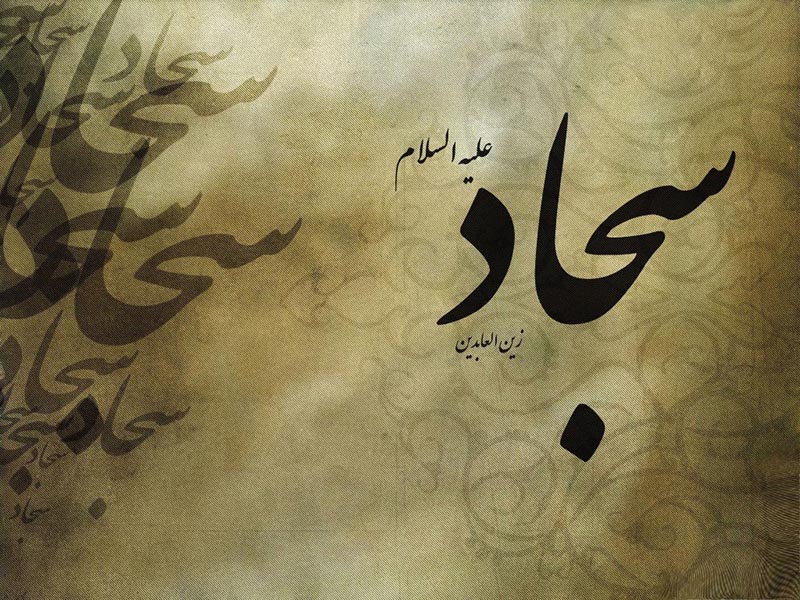 سجاد
علیه السلام
زین العابدین
سجاد
سجاد
سجاد
سجاد
سجاد
سجاد